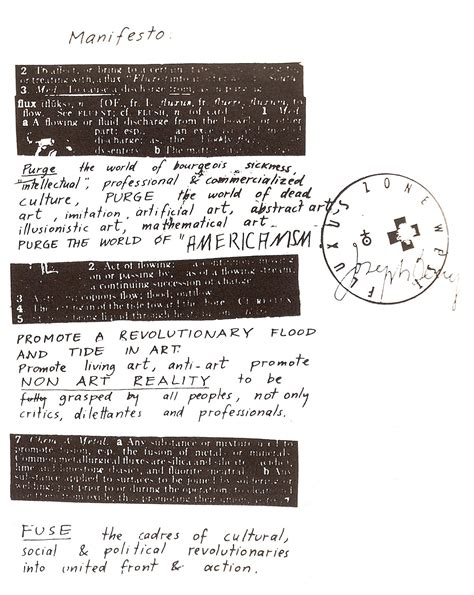 Manifesto:
2. To affect, or bring to a certain
or treating with, a flux.
3. Med. To cause a discharge from, as in purging.
flux (flŭks), n. [OF., fr. L. fluxus, fr. fluere, fluxum, to
flow. See FLUENT; cf. FLUSH, n. (of cards).] 1. Med.
a A flowing or fluid discharge from the bowels or other
part; esp., an excessive and morbid
discharge; as, the bloody flux, or
dysentery. b The matter
Purge the world of bourgeois sickness,
"intellectual", professional & commercialized
culture, PURGE the world of dead
art, imitation, artificial art, abstract art,
illusionistic art, mathematical art —
PURGE THE WORLD OF "AMERICANISM"
2. Act of flowing: a
on or passing by, as of a flowing stream;
a continuing succession of changes.
3. A stream; copious flow; flood; outflow.
4. The setting in of the tide toward the shore. Cf. REFLUX.
5.
PROMOTE A REVOLUTIONARY FLOOD
AND TIDE IN ART.
Promote living art, anti-art, promote
NON ART REALITY to be
fully grasped by all peoples, not only
critics, dilettantes and professionals.
7. Chem. & Metal. a Any substance or mixture used to
promote fusion, esp. the fusion of metals or minerals.
Common metallurgical fluxes are silica and silicates (acidic),
lime and limestone (basic), and fluorite (neutral). b Any
substance applied to surfaces to be joined by soldering or
welding, just prior to or during the operation, to clean
oxide, thus promoting their union, as
FUSE the cadres of cultural,
social & political revolutionaries
into united front & action.
FLUXUS ZONE WEST
Joseph Beuys